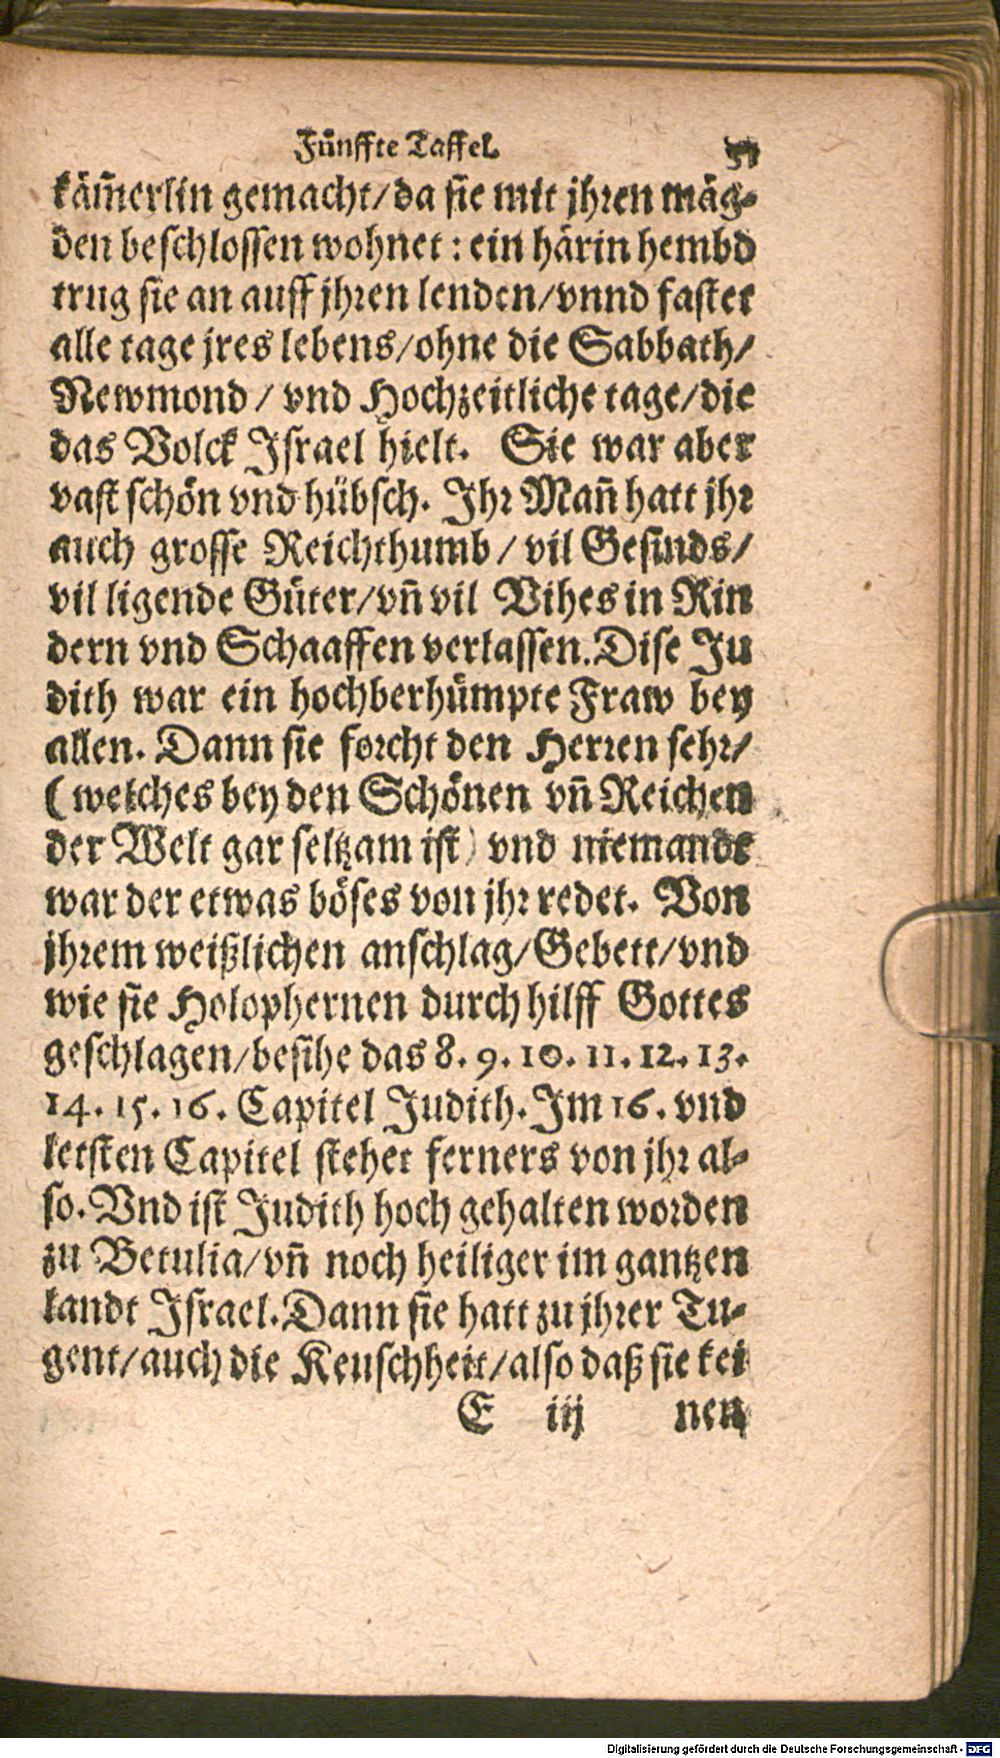 Fünffte Taffel
käm̃erlin gemacht/da sie mit jhren mäg-
den beschlossen wohnet: ein härin hembd
trug sie an auff jhren lenden/vnnd fastet
alle tage jres lebens/ohne die Sabbath/
Newmond/ vnd Hochzeitliche tage/die
das Volck Israel hielt. Sie war aber
vast schön vnd hübsch. Ihr Mañ hatt jhr
auch grosse Reichthumb/ vil Gesinds/
vil ligende Güter/vñ vil Vihes in Rin
dern vnd Schaaffen verlassen. Dise Ju
dith war ein hochberhümpte Fraw bey
allen. Dann sie forcht den Herren sehr/
(welches bey den Schönen vñ Reichen
der Welt gar seltzam ist) vnd niemands
war der etwas böses von jhr redet. Von
jhrem weißlichen anschlag/Gebett/vnd
wie sie Holophernen durch hilff Gottes
geschlagen/besihe das 8. 9. 10. 11. 12. 13.
14. 15. 16. Capitel Judith. Im 16. vnd
letsten Capitel stehet ferners von jhr al-
so. Vnd ist Judith hoch gehalten worden
zu Betulia/vñ noch heiliger im gantzen
landt Israel. Dann sie hatt zu jhrer Tu-
gent/auch die Keuschheit/also daß sie kei
E iij nen
Digitalisierung gefördert durch die Deutsche Forschungsgemeinschaft - DFG